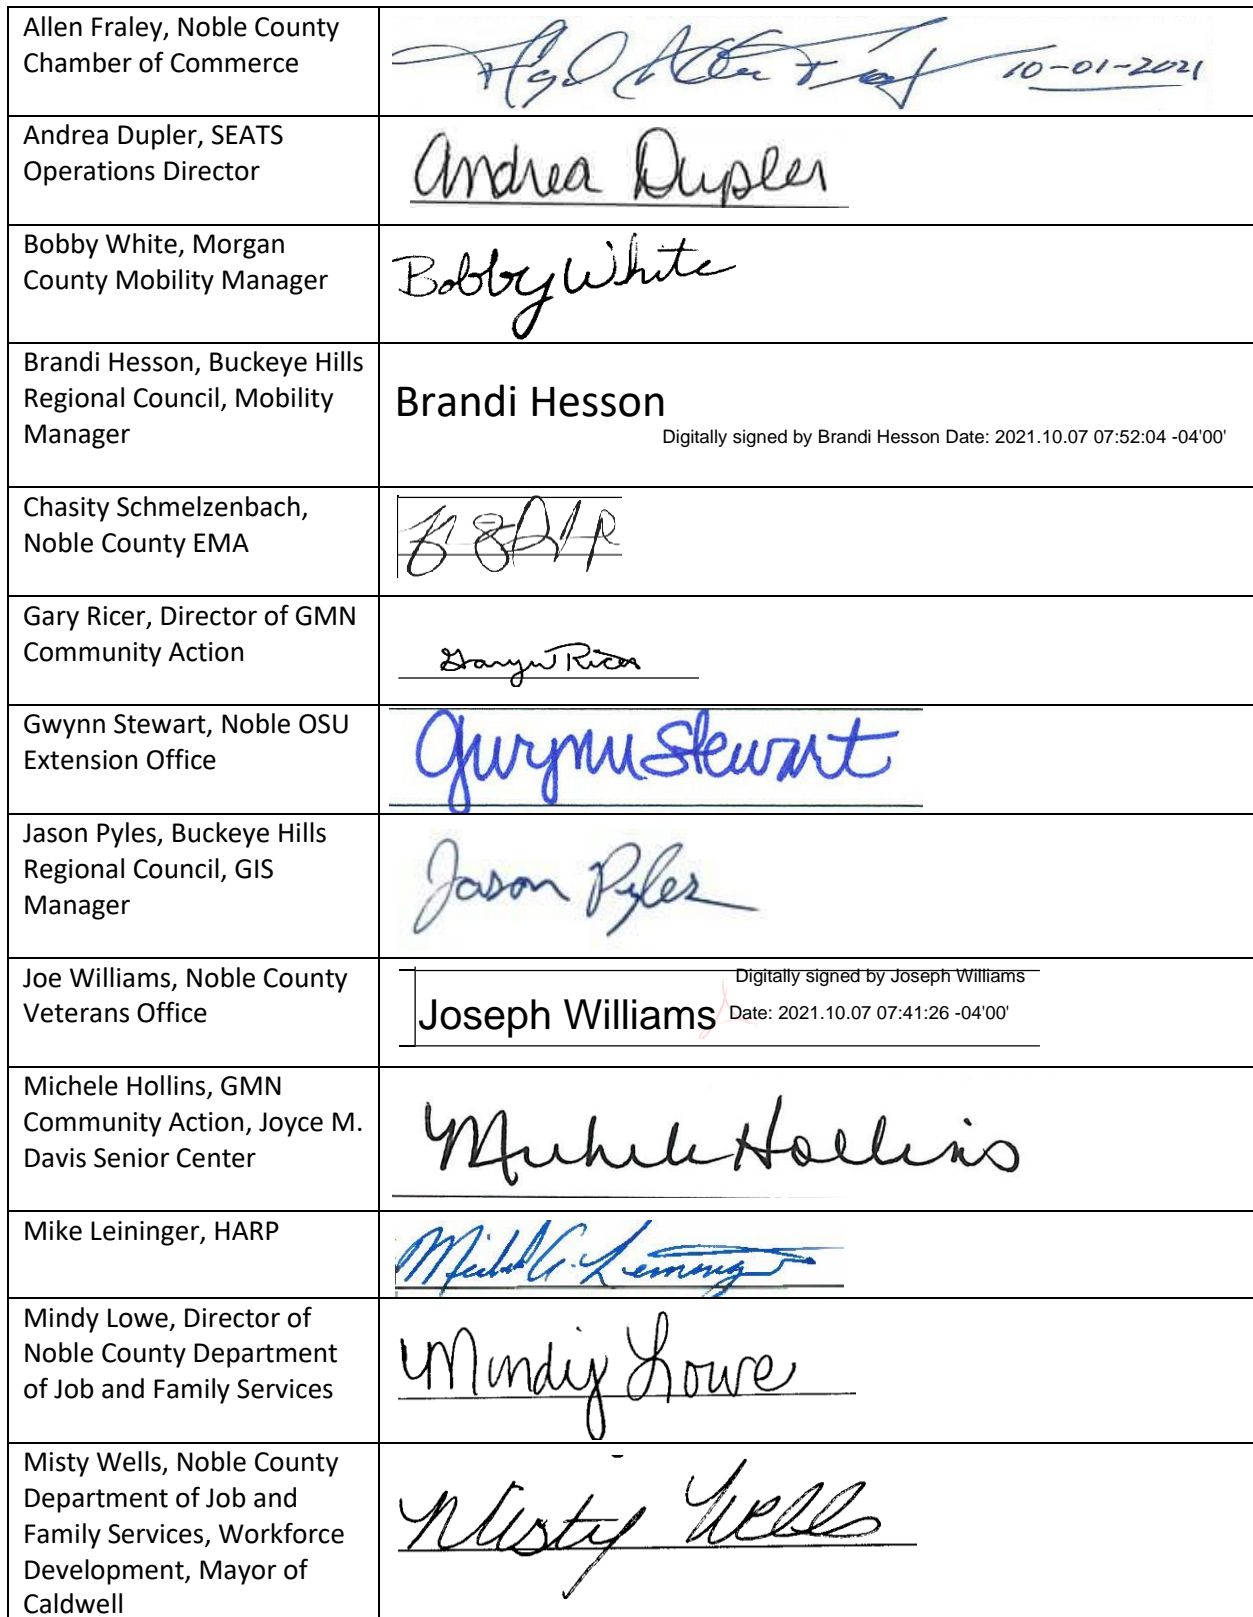 Allen Fraley, Noble County
Chamber of Commerce
Allen 10-01-2021
Andrea Dupler, SEATS
Operations Director
Andrea Dupler
Bobby White, Morgan
County Mobility Manager
Bobby White
Brandi Hesson, Buckeye Hills
Regional Council, Mobility
Manager
Brandi Hesson
Digitally signed by Brandi Hesson Date: 2021.10.07 07:52:04 -04'00'
Chasity Schmelzenbach,
Noble County EMA
Gary Ricer, Director of GMN
Community Action
Gary W Ricer
Gwynn Stewart, Noble OSU
Extension Office
Gwynn Stewart
Jason Pyles, Buckeye Hills
Regional Council, GIS
Manager
Jason Pyles
Joe Williams, Noble County
Veterans Office
Digitally signed by Joseph Williams
Joseph Williams Date: 2021.10.07 07:41:26 -04'00'
Michele Hollins, GMN
Community Action, Joyce M.
Davis Senior Center
Michele Hollins
Mike Leininger, HARP
Michael A. Leininger
Mindy Lowe, Director of
Noble County Department
of Job and Family Services
Mindy Lowe
Misty Wells, Noble County
Department of Job and
Family Services, Workforce
Development, Mayor of
Caldwell
Misty Wells